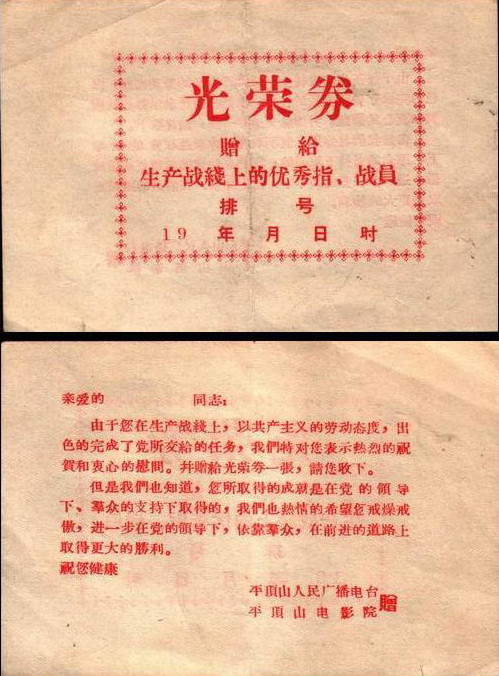 光荣券
贈 給
生产战綫上的优秀指、战員
排 号
19 年 月 日 时
亲爱的 同志：
由于您在生产战綫上，以共产主义的劳动态度，出
色的完成了党所交給的任务，我們特对您表示热烈的祝
賀和衷心的慰問。幷贈給光荣券一张，請您收下。
但是我們也知道，您所取得的成就是在党的領导
下、羣众的支持下取得的，我們也热情的希望您戒燥戒
傲，进一步在党的領导下，依靠羣众，在前进的道路上
取得更大的勝利。
祝您健康
平頂山人民广播电台
平頂山电影院
贈